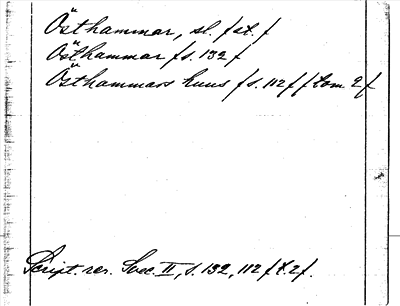 Östhammar, sl. / st. /
Östhammar / s. 132 /
Östhammars huus / s. 112 / / tom 2 /
Script. rer. Svec. II, s. 132, 112 / t. 2 /.